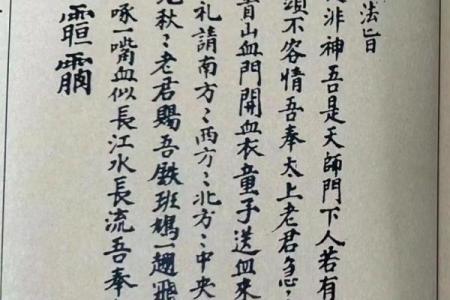 法旨
非神吾是天師門下人若有
頭不容情吾奉太上老君急〻
青山血門開血衣童子送血來
礼請南方〻西方〻北方〻中央
秋〻老君賜吾鉄班鳩一趟飛
啄一嘴血似長江水長流吾奉